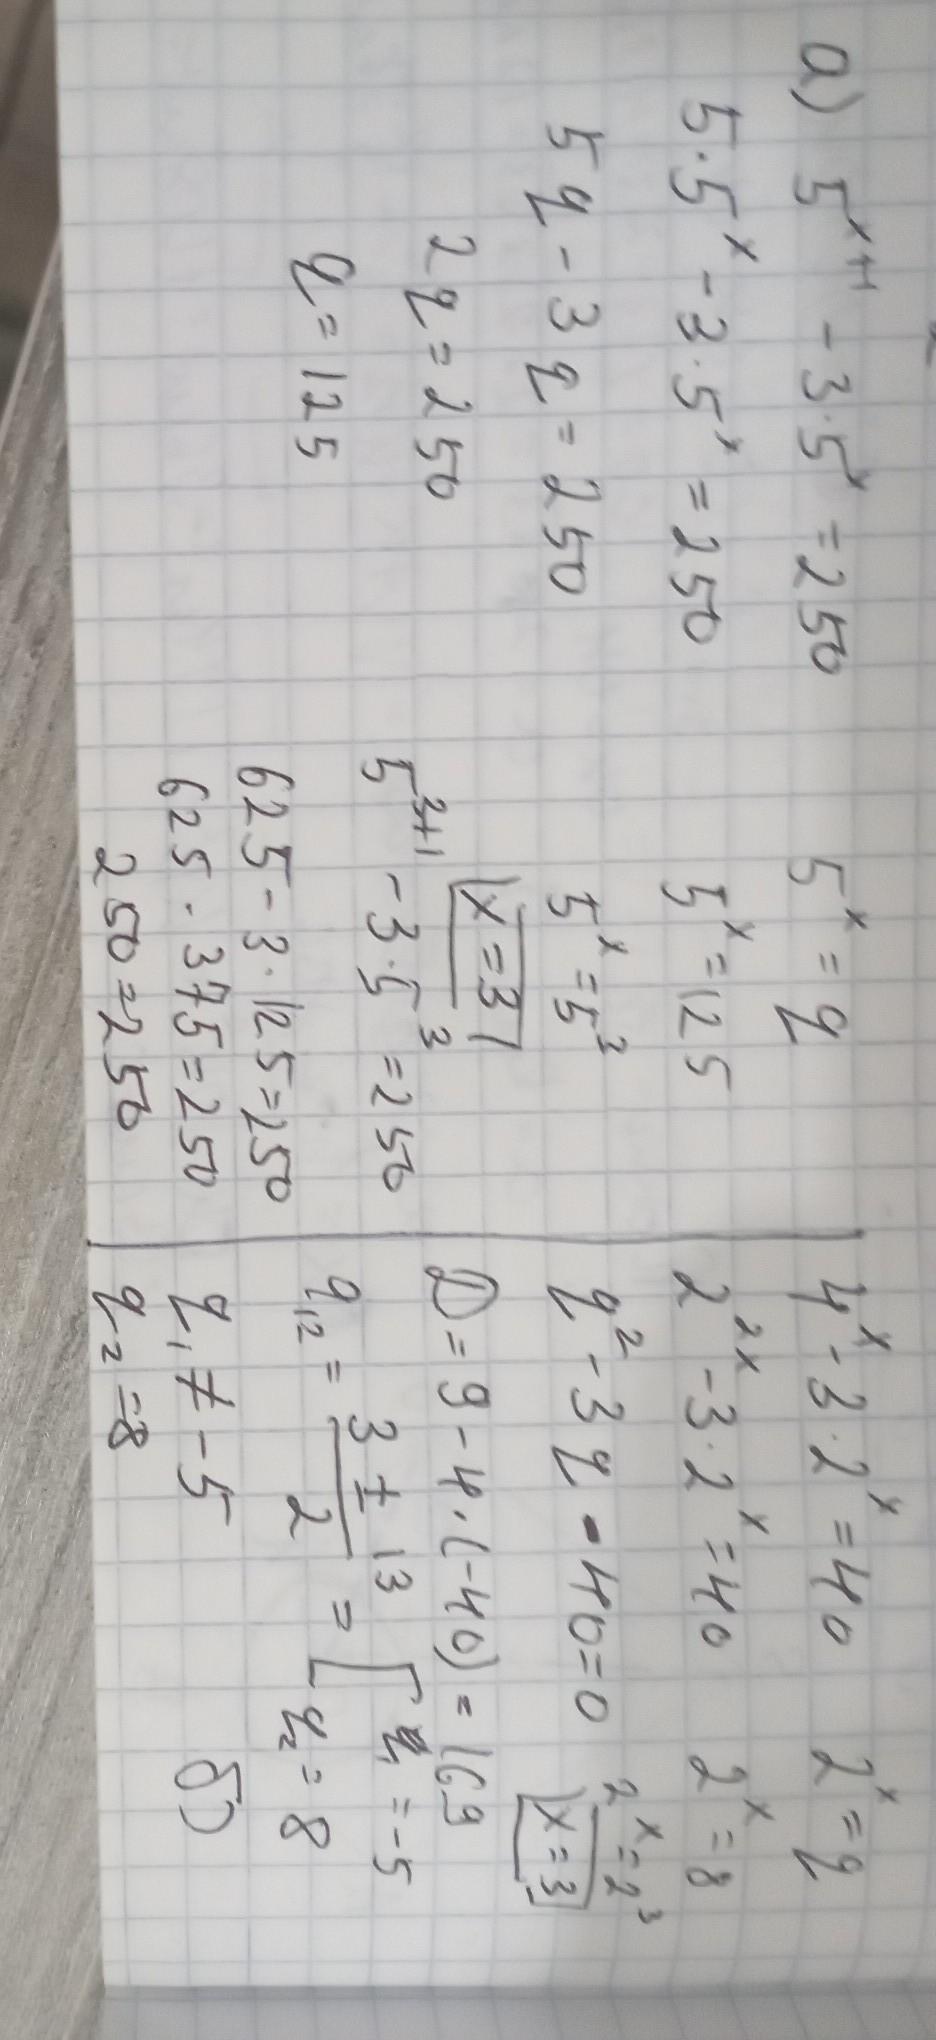 а) 5^(x+1) - 3·5^x = 250
5·5^x - 3·5^x = 250
5q - 3q = 250
2q = 250
q = 125
5^x = q
5^x = 125
5^x = 5^3
x = 3
5^(3+1) - 3·5^3 = 250
625 - 3·125 = 250
625 - 375 = 250
250 = 250
4^x - 3·2^x = 40
2^(2x) - 3·2^x = 40
q^2 - 3q - 40 = 0
D = 9 - 4·(-40) = 169
q_12 = (3 ± 13)/2 = [ q_1 = -5
q_2 = 8
q_1 ≠ -5
q_2 = 8
2^x = q
2^x = 8
2^x = 2^3
x = 3
б)